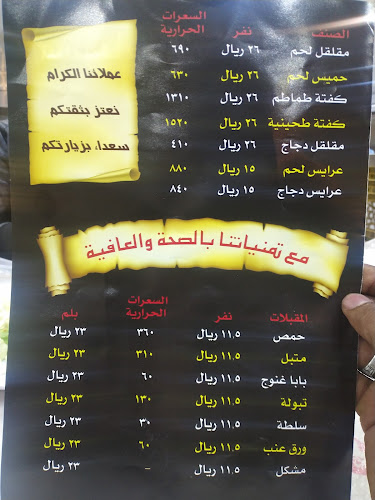 الصنف نفر السعرات الحرارية
مقلقل لحم ٢٦ ريال ٦٩٠
حميس لحم ٢٦ ريال ٦٣٠
كفتة طماطم ٢٦ ريال ١٣١٠
كفتة طحينية ٢٦ ريال ١٥٢٠
مقلقل دجاج ٢٦ ريال ٤١٠
عرايس لحم ١٥ ريال ٨٨٠
عرايس دجاج ١٥ ريال ٨٤٠
عملائنا الكرام
نعتز بثقتكم
سعداء بزيارتكم
مع تمنياتنا بالصحة والعافية
المقبلات نفر السعرات الحرارية بلم
حمص ١١.٥ ريال ٣٦٠ ٢٣ ريال
متبل ١١.٥ ريال ٣١٠ ٢٣ ريال
بابا غنوج ١١.٥ ريال ٦٠ ٢٣ ريال
تبولة ١١.٥ ريال ١٣٠ ٢٣ ريال
سلطة ١١.٥ ريال ٣٠ ٢٣ ريال
ورق عنب ١١.٥ ريال ٦٠ ٢٣ ريال
مشكل ١١.٥ ريال - ٢٣ ريال